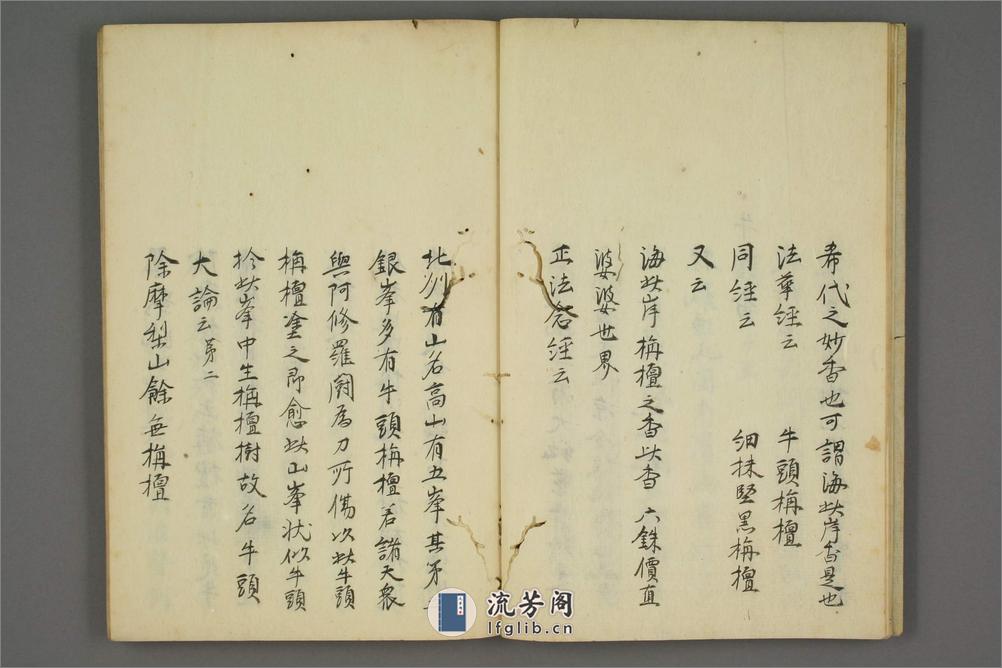 希代之妙香也可謂海此岸香是也
法華經云 牛頭栴檀
同經云 細抹堅黒栴檀
又云
海此岸栴檀之香此香六銖價直
娑婆世界
正法念經云
北洲有山名高山有五峯其第一
銀峯多有牛頭栴檀若諸天衆
與阿修羅鬪爲刀所傷以此牛頭
栴檀塗之即愈此山峯状似牛頭
於此峯中生栴檀樹故名牛頭
大論云第二
除摩梨山餘無栴檀
流芳阁
lfglib.cn